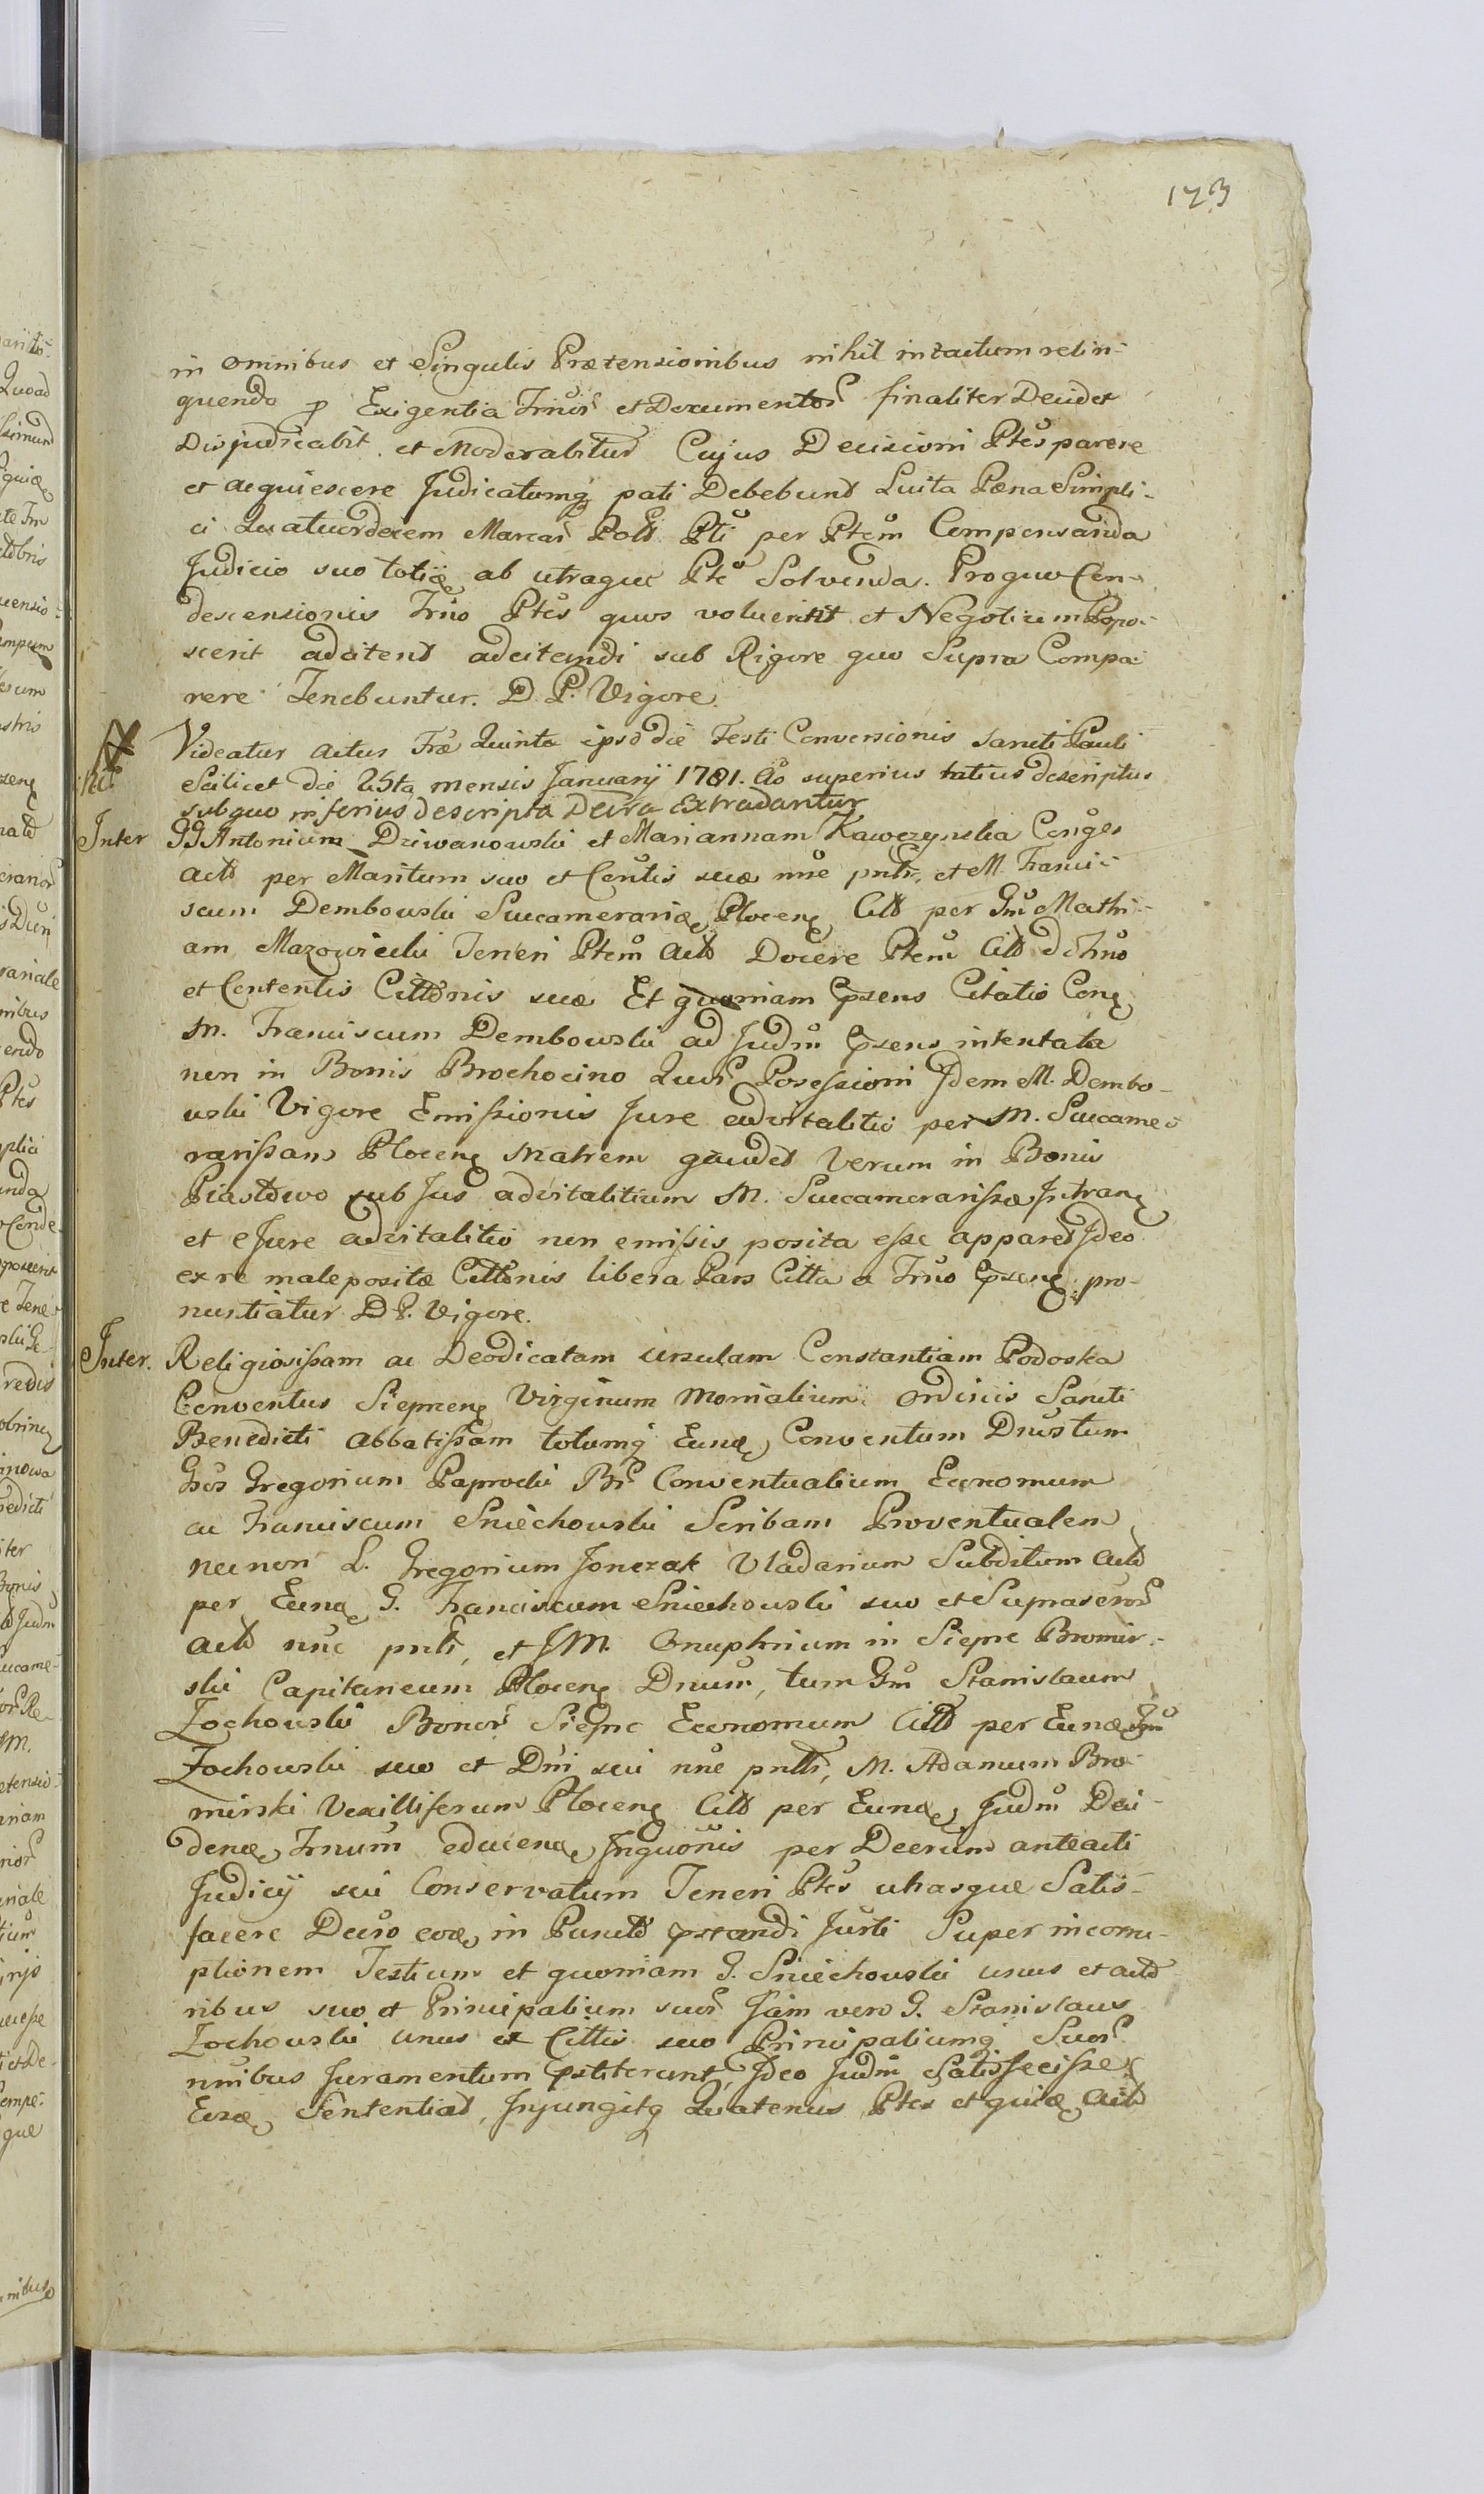 173
in omnibus et Singulis Prætensionibus nihil intactum relin-
quendo p Exigentia Trnor et Documentor finaliter Decidet
Disjudicabit et Moderabitur Cujus Decisioni Ptes parere
et acquiescere Judicatumq pati Debebunt Luita Pæna Simpli-
ci Quatuordecem Marcar Pold Pti per Ptem Compensanda
Judicio suo toties ab utraque Pte Solvenda. Proquo Con-
descensionis Trno Ptes quos voluerint et Negotium Popo-
scerit adcitent adcitandi sub Rigore quo Supra Compa-
rere Tenebuntur. D. P. Vigore.
Videatur actus Fræ Quinta ipso die Festi Conversionis Sancti Pauli
NB. Scilicet die 25ta mensis Januarij 1781. Ao superius latius descriptus
subquo inferius descripta Decra Extradantur
Inter GG Antonium Dziwanowski et Mariannam Kawczynska Conges
Actt per Maritum suo et Contis suæ nne pntt, et M. Franci-
scum Dembowski Succamerariæ Plocen Citt per Gm Mathi-
am Mazowiecki Teneri Ptem Actt Docere Ptem Citt de Trno
et Contentis Cittonis suæ Et quoniam psens Citatio Con
M. Franciscum Dembowski ad Judm psens intentata
non in Bonis Brochocino Quor Possessioni Idem M. Dembo-
wski Vigore Emissionis Jure advitalitio per M. Succame-
rarissam Plocen Matrem gaudet Verum in Bonis
Piastowo sub Jus advitalitium M. Succamerarissæ Intran
et e Jure advitalitio non emissis posita esse apparet Ideo
ex re male positæ Cittonis libera Pars Citta a Trno psen pro-
nuntiatur D P. Vigore.
Inter. Religiosissam ac Deodicatam Ursulam Constantiam Podoska
Conventus Siepnen Virginum Monialium ordinis Sancti
Benedicti Abbatissam totumq Eund Conventum Dnostum
Gsos Gregorium Paprocki Br Conventualium Economum
ac Franciscum Sniechowski Scribam Proventualem
necnon L. Gregorium Jonczak Vladarium Subditum Actt
per Eund G. Franciscum Sniechowski suo et Suprascror
Actt nne pntt, et JM. Onuphrium in Siepnc Bromir-
ski Capitaneum Plocen Dnum, tum Gm Stanislaum
Zochowski Bonor Siepnc Economum Citt per Eund Gm
Zochowski suo et Dni sui nne pntt, M. Adamum Bro-
mirski Vexilliferum Plocen Citt per Eund Judm Deci-
dend Trnum educend Inquonis per Decrum anteacti
Judicij sui Conservatum Teneri Ptes utrasque Satis-
facere Decro eod in Puncto pstandi Jurti Super incorru-
ptionem Testium et quoniam G. Sniechowski unus et Acto-
ribus suo et Principalium suor Jam vero G. Stanislaus
Zochowski unus ex Cittis suo Principaliumq Suor
nnibus Juramentum pstiterunt, Ideo Judm Satisfecisse
Eisd Sententiat, Injungitq Quatenus Ptes et quid Actt